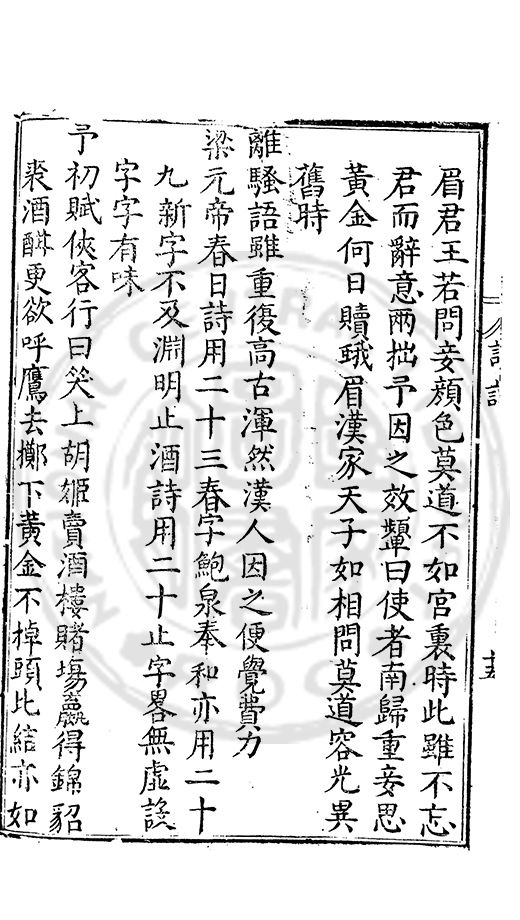 眉君王若問妾顏色莫道不如宮裏時此雖不忘
君而辭意兩拙予因之效顰曰使者南歸重妾思
黃金何日贖蛾眉漢家天子如相問莫道容光異
舊時
離騷語雖重復高古渾然漢人因之便覺費力
梁元帝春日詩用二十三春字鮑泉奉和亦用二十
九新字不及淵明止酒詩用二十止字畧無虛設
字字有味
予初賦俠客行曰笑上胡姬賣酒樓賭場贏得錦貂
裘酒酣更欲呼鷹去擲下黃金不掉頭此結亦如